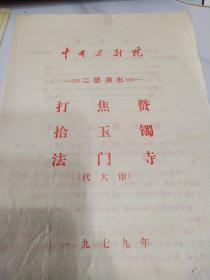 中国京剧院
二团演出
打焦赞
拾玉镯
法门寺
(代大审)
一九七九年